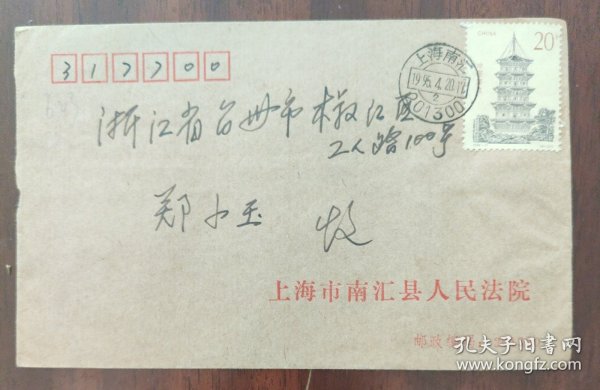 317700
上海南汇
1995.4.20.12
2
201300
20分
CHINA
浙江省台州市椒江区
工人路100号
郑小玉 收
上海市南汇县人民法院
邮政编
孔夫子旧书网
www.kongfz.com